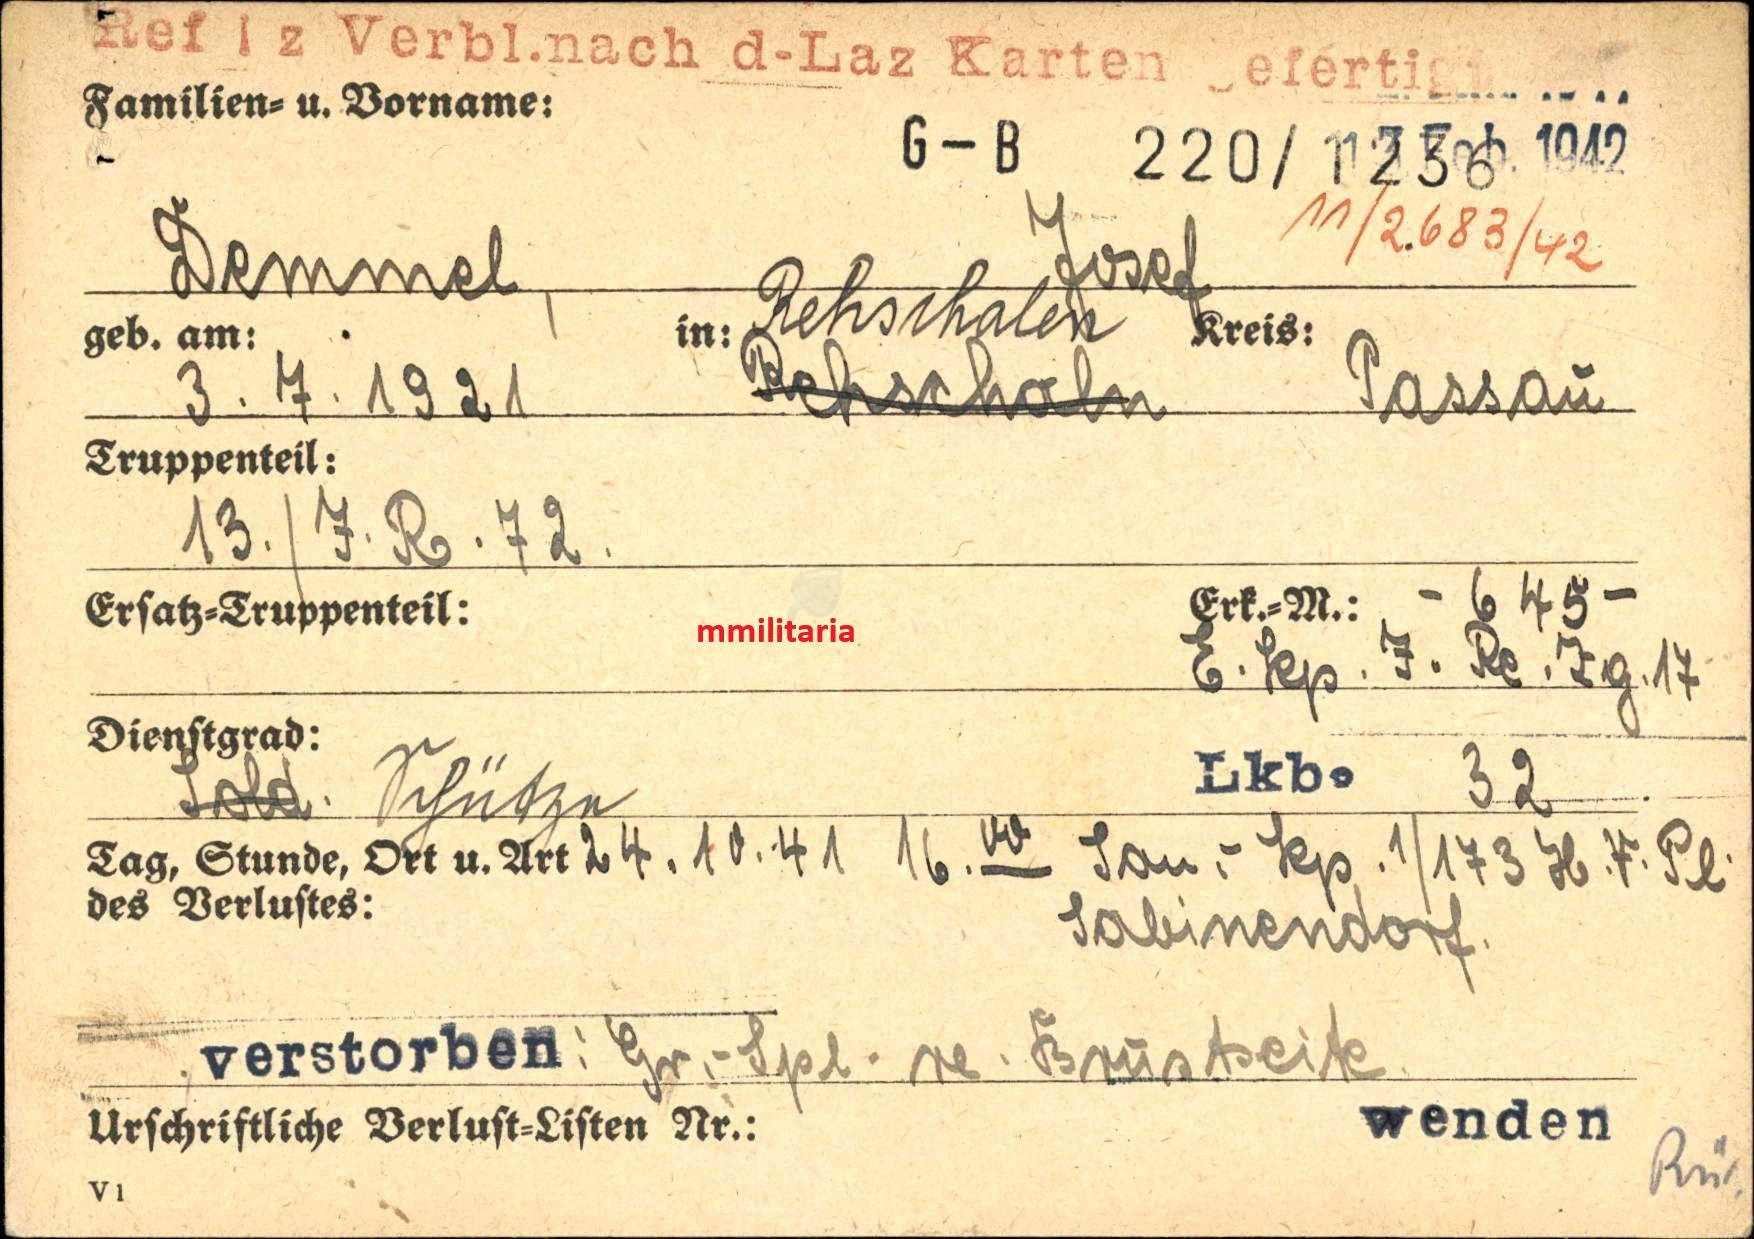 Ref I z Verbl.nach d-Laz Karten gefertigt
Familien- u. Vorname:
G-B 220/1236 Feb. 1942
11/2.683/42
Demmel, Josef
geb. am: in: Rehschalen Kreis:
3.7.1921 Rehschaln Passau
Truppenteil:
13./J.R.72.
Ersatz-Truppenteil: Erk.-M.: -645-
E.Kp.J.Rg.17
mmilitaria
Dienstgrad: Lkb. 32
Sold. Schütze
Tag, Stunde, Ort u. Art 24.10.41 16.00 San.-Kp.1/173 H.V.Pl.
des Verlustes: Sabinendorf.
verstorben: Gr.-Spl. re. Brustseite.
Urschriftliche Verlust-Listen Nr.: wenden
Rü.
V1